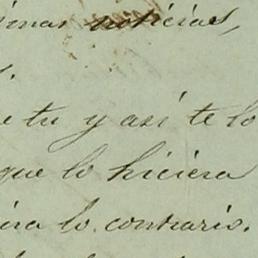 noticias,
e tu y así te lo
que lo hiciera
lo contrario.